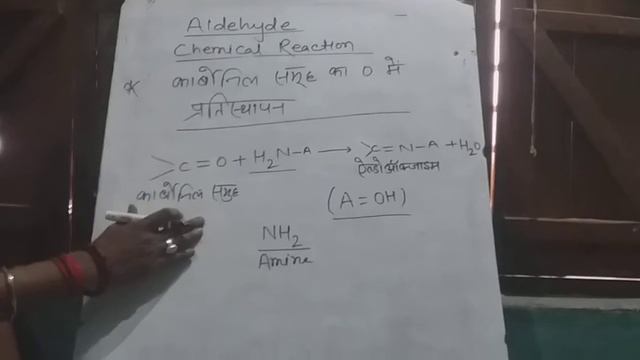 Aldehyde
Chemical Reaction
* कार्बोनिल समूह का O में
प्रतिस्थापन
>C=O + H₂N-A ⟶ >C=N-A + H₂O
ऐल्डोऑक्जाइम
कार्बोनिल समूह
(A=OH)
NH₂
Amine